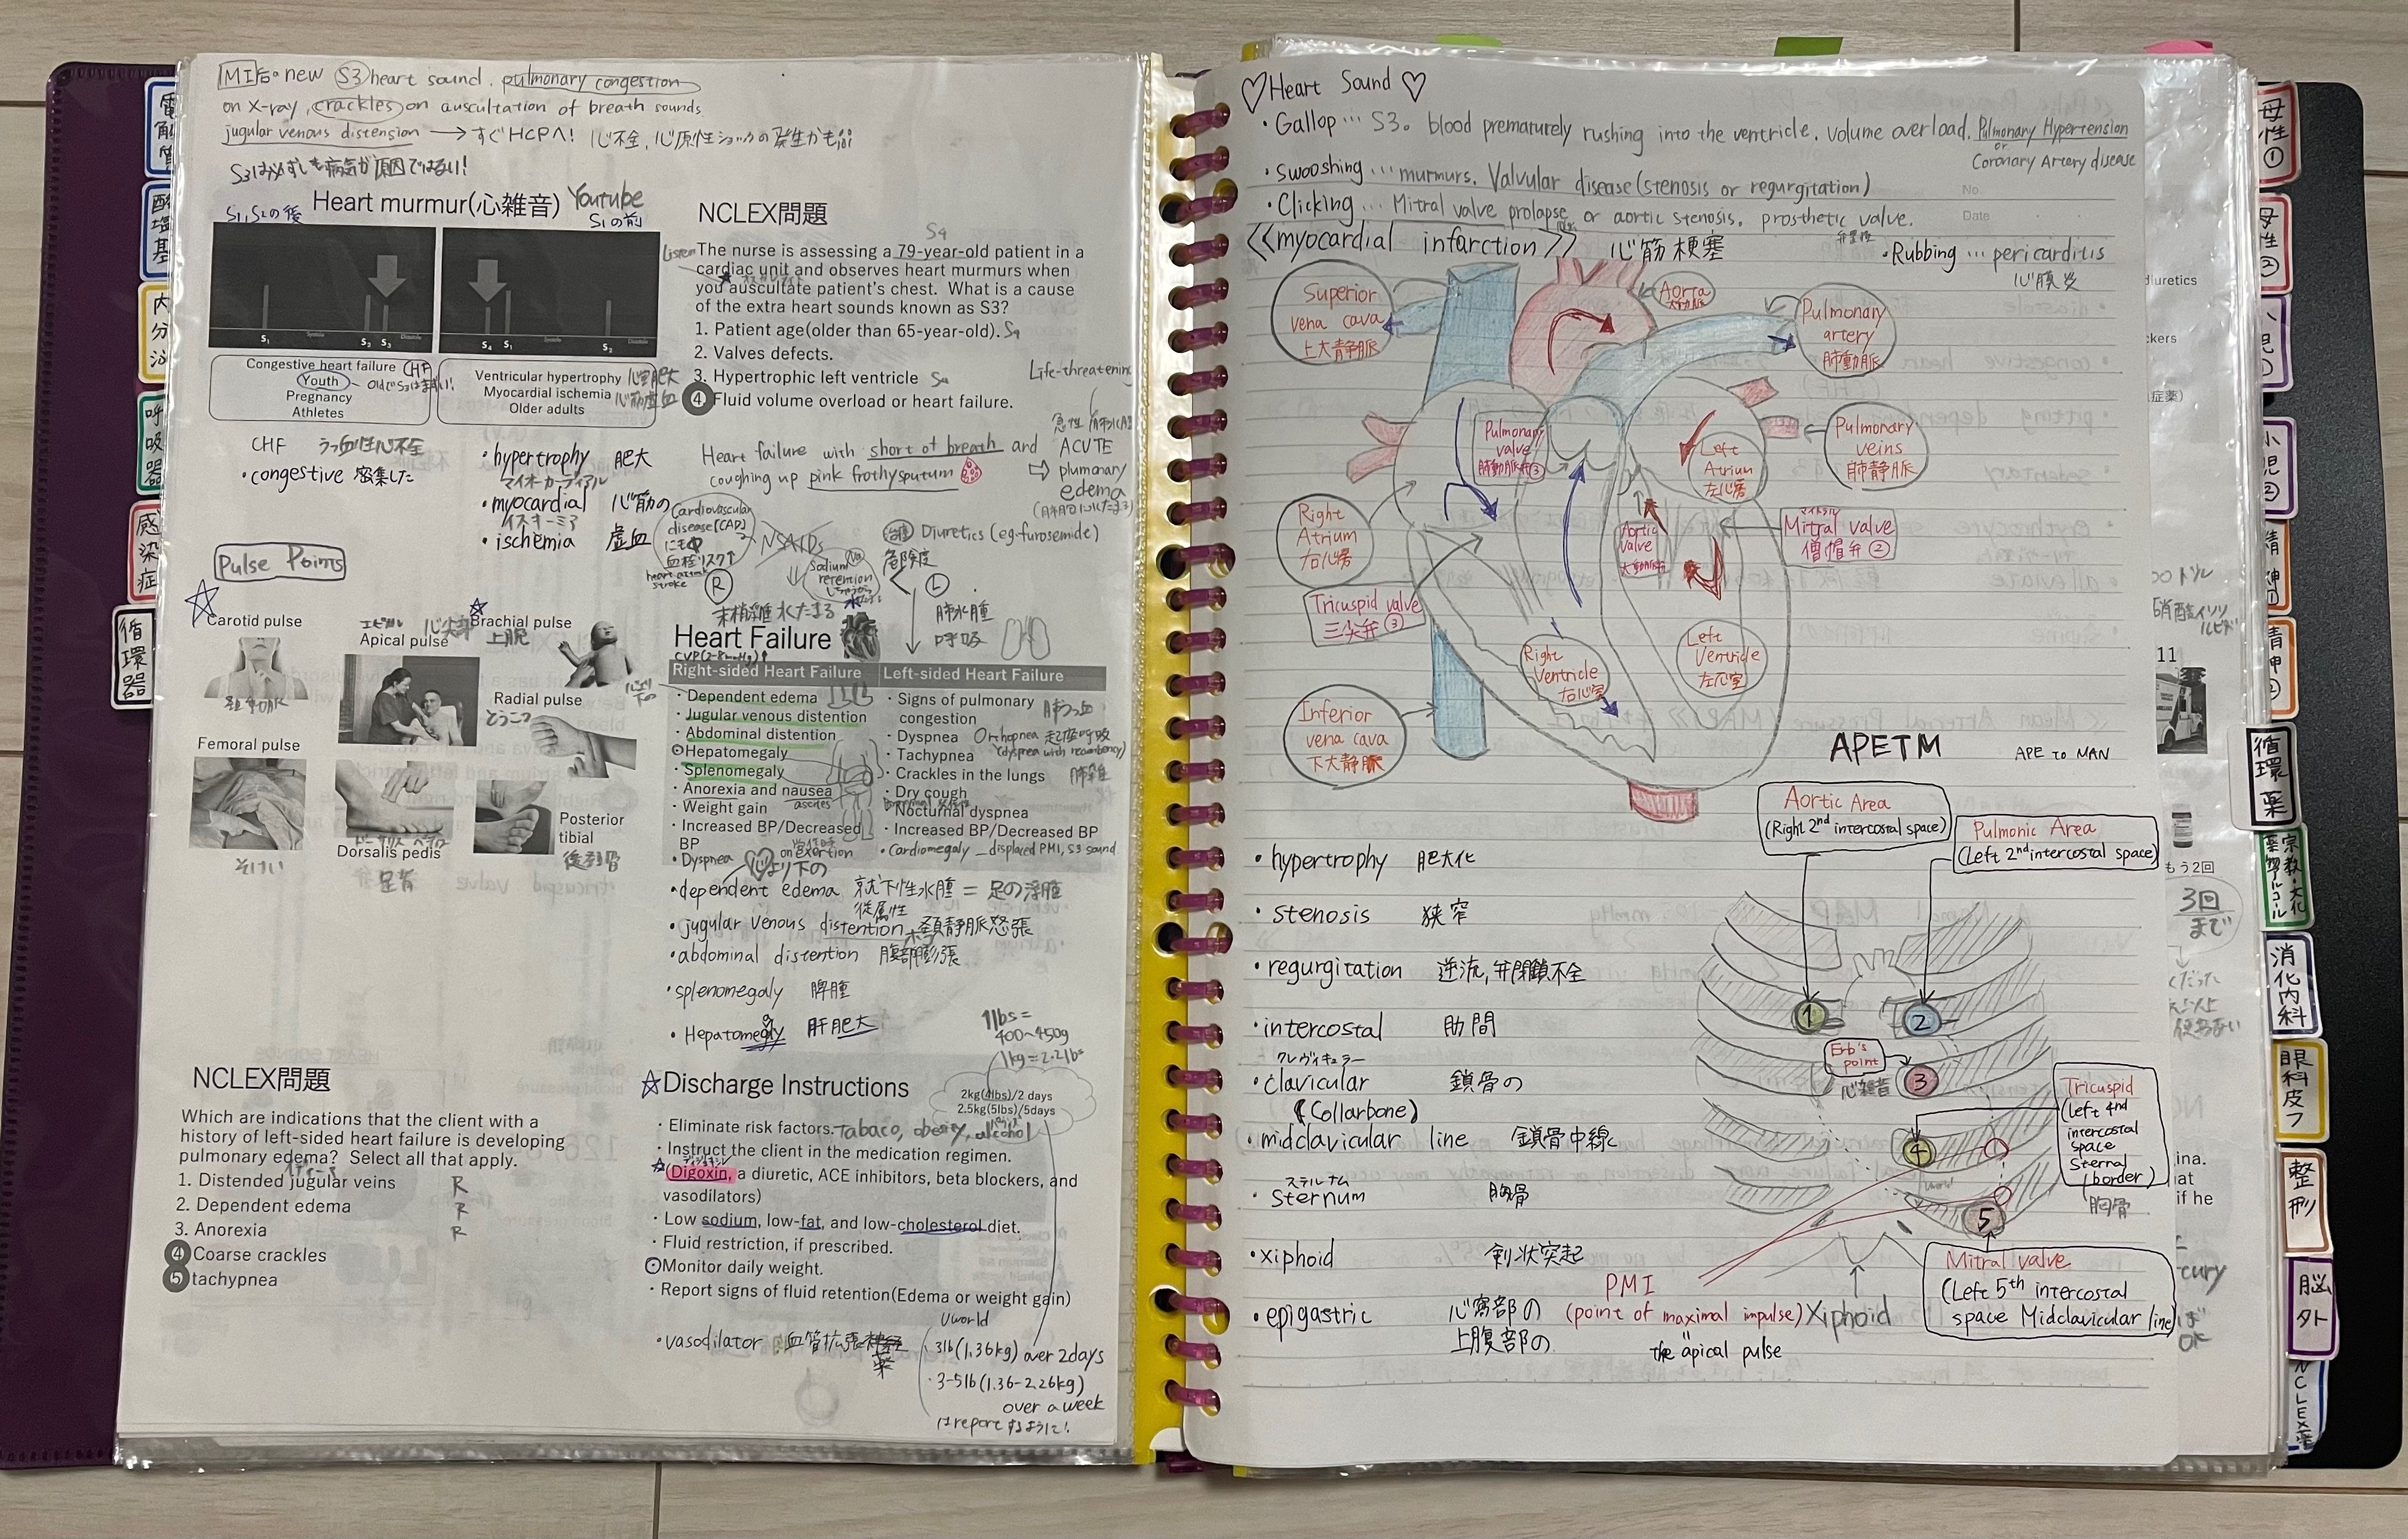 MI后の new S3 heart sound. pulmonary congestion
on X-ray, crackles on auscultation of breath sounds
jugular venous distension → すぐHCPへ! 心不全, 心原性ショックの発生かも
S3は必ずしも病気が原因ではない!
Heart murmur(心雑音) Youtube
S1, S2の後
S1の前
S1 Systole S2 S3 Diastole
S4 S1 Systole S2 Diastole
Congestive heart failure CHF
Youth
Pregnancy
Athletes
Ventricular hypertrophy 心室肥大
Myocardial ischemia 心筋虚血
Older adults
CHF うっ血性心不全
・congestive 密集した
・hypertrophy 肥大
マイオーカーディアル
・myocardial 心筋の
イスキーミア
・ischemia 虚血
Pulse Points
Carotid pulse
Apical pulse 心尖部
Brachial pulse
上腕
Radial pulse
とうこつ
Femoral pulse
そけい
Dorsalis pedis
足背
Posterior
tibial
後脛骨
NCLEX問題
Which are indications that the client with a
history of left-sided heart failure is developing
pulmonary edema? Select all that apply.
1. Distended jugular veins R
2. Dependent edema R
3. Anorexia R
4 Coarse crackles
5 tachypnea
NCLEX問題
S4
Listen
The nurse is assessing a 79-year-old patient in a
cardiac unit and observes heart murmurs when
you auscultate patient's chest. What is a cause
of the extra heart sounds known as S3?
1. Patient age(older than 65-year-old). S4
2. Valves defects.
3. Hypertrophic left ventricle S4
4 Fluid volume overload or heart failure.
Life-threatening
Heart failure with short of breath and
coughing up pink frothysputum
急性肺水腫
⇨ ACUTE
plumonary
edema
Cardiovascular
disease[CAD]
にも
血栓リスク↑
heart attack
stroke
NSAIDs
Sodium
retention
治療 Diuretics (eg.furosemide)
危険度
R
末梢 水たまる
L
肺水腫
呼吸
Heart Failure
CVP(2-8mmHg)↑
Right-sided Heart Failure
・Dependent edema
・Jugular venous distention
・Abdominal distention
Hepatomegaly
・Splenomegaly
・Anorexia and nausea
ascites
・Weight gain
・Increased BP/Decreased
BP
・Dyspnea on exertion
Left-sided Heart Failure
・Signs of pulmonary
congestion 肺うっ血
・Dyspnea Orthopnea 起座呼吸
(dyspnea with recumbency)
・Tachypnea
・Crackles in the lungs 肺雑
・Dry cough
・Nocturnal dyspnea
・Increased BP/Decreased BP
・Cardiomegaly _ displaced PMI, S3 sound
心より下の
・dependent edema 就下性水腫 = 足の浮腫
従属性
・jugular venous distention 頚静脈怒張
・abdominal distention 腹部膨張
・splenomegaly 脾腫
・Hepatomegaly 肝肥大
1lbs=
400~450g
1kg=2.2lbs
☆Discharge Instructions
2kg(4lbs)/2 days
2.5kg(5lbs)/5days
・Eliminate risk factors. Tabaco, obesity, alcohol
・Instruct the client in the medication regimen.
(Digoxin, a diuretic, ACE inhibitors, beta blockers, and
vasodilators)
・Low sodium, low-fat, and low-cholesterol diet.
・Fluid restriction, if prescribed.
Monitor daily weight.
・Report signs of fluid retention(Edema or weight gain)
・vasodilator 血管拡張薬
Uworld
・3lb(1.36kg) over 2days
・3-5lb(1.36-2.26kg)
over a week
はreportするように!
♡Heart Sound♡
・Gallop … S3。 blood prematurely rushing into the ventricle. volume overload. Pulmonary Hypertension
or
Coronary Artery disease
・swooshing … murmurs. Valvular disease(stenosis or regurgitation)
No.
・Clicking … Mitral valve prolapse or aortic stenosis. prosthetic valve.
Date
≪myocardial infarction≫ 心筋梗塞
・Rubbing … pericarditis
心膜炎
Superior
vena cava
上大静脈
Aorta
大動脈
Pulmonary
artery
肺動脈
Pulmonary
valve
肺動脈弁③
Left
Atrium
左心房
Pulmonary
veins
肺静脈
Right
Atrium
右心房
Aortic
valve
大動脈弁
マイトラル
Mitral valve
僧帽弁②
Tricuspid valve
三尖弁③
Right
Ventricle
右心室
Left
Ventricle
左心室
Inferior
vena cava
下大静脈
APETM APE TO MAN
Aortic Area
(Right 2nd intercostal space)
Pulmonic Area
(Left 2nd intercostal space)
1
2
Erb's
point
心雑音
3
4
5
Tricuspid
(left 4nd
intercostal
space
Sternal
border)
胸骨
Mitral valve
(Left 5th intercostal
space Midclavicular line)
Xiphoid
PMI
(point of maximal impulse)
"
the apical pulse
・hypertrophy 肥大化
・stenosis 狭窄
・regurgitation 逆流, 弁閉鎖不全
・intercostal 肋間
クレヴィキュラー
・clavicular 鎖骨の
(Collarbone)
・midclavicular line 鎖骨中線
ステルナム
・Sternum 胸骨
・xiphoid 剣状突起
・epigastric 心窩部の
上腹部の
電解質
酸塩基
内分泌
呼吸器
感染症
循環器
母性①
母性②
小児①
小児②
精神①
精神②
循環薬
宗教・文化
薬物アルコール
消化内科
眼科皮フ
整形
脳外
NCLEX
diuretics
11
もう2回
3回
まで
if he
OK